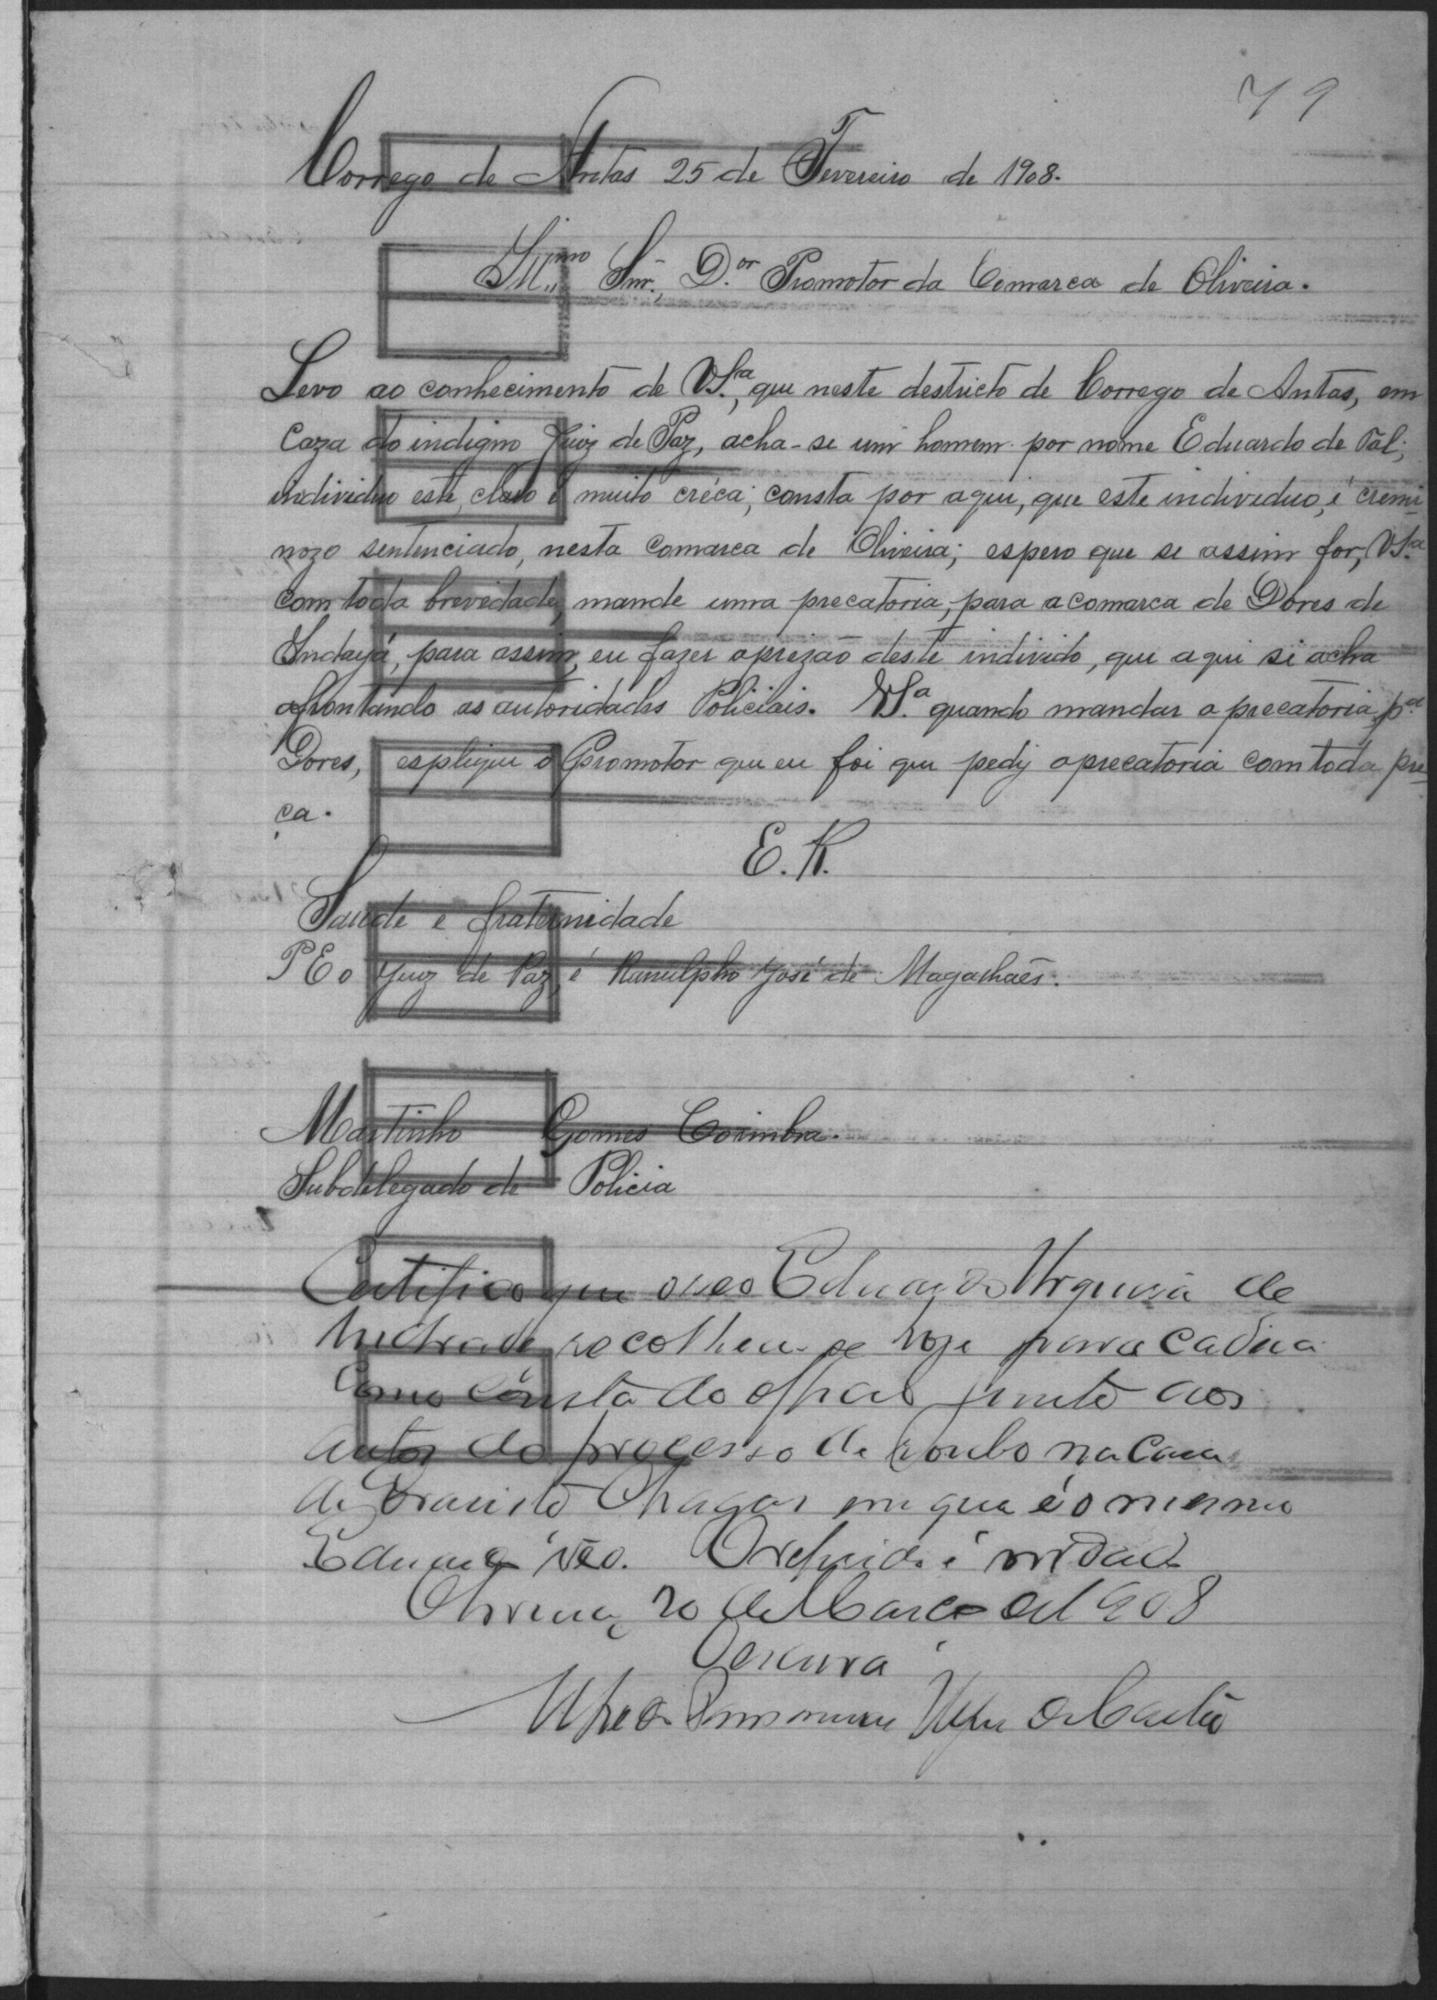 79
Corrego de Antas 25 de Fevereiro de 1908.
Ill.mo Snr. D.or Promotor da Comarca de Oliveira.
Levo ao conhecimento de VS.ra, que neste destricto de Corrego de Antas, em
caza do indigno Juiz de Paz, acha-se um homem por nome Eduardo de tal;
individuo este, claro e muito créca; consta por aqui, que este individuo, é cremi
nozo sentenciado, nesta comarca de Oliveira; espero que se assim for, VS.a
com toda brevidade, mande uma precatoria, para a comarca de Dores de
Indayá, para assim, eu fazer a prezão deste individo, que aqui si acha
afrontando as autoridades Policiais. VS.a quando mandar a precatoria p.a
Dores, esplique o Promotor que eu foi que pedy a precatoria com toda pre
ça.
E. R.
Saude e fraternidade
P E o Juiz de Paz, é Ranulpho José de Magalhaës.
Martinho Gomes Coimbra.
Subdelegado de Policia
Certifico que o reo Eduardo de
Andrade recolheu-se hoje para a cadeia
como consta do officio junto aos
autos do processo de roubo na casa
de Evaristo Chagas em que é o mesmo
Eduardo réo. O referido é verdade
Oliveira, 20 de Março de 1908
O escrivão
de Castro